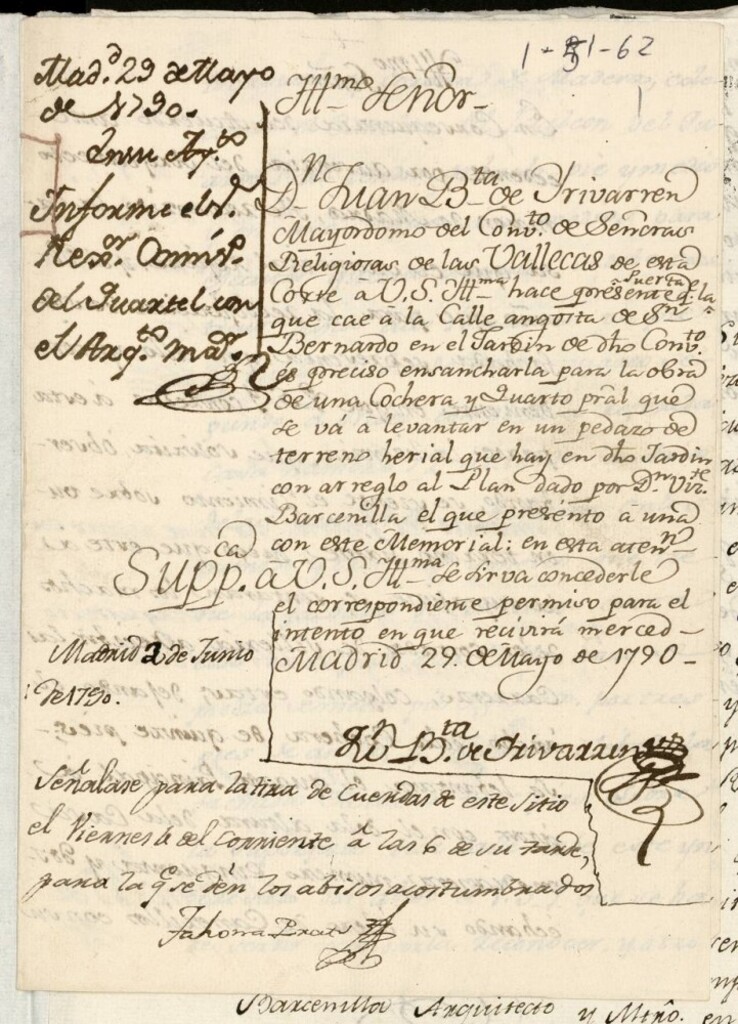 1-51-62
Mad.d 29 de Mayo
de 1790.
En su Ay.to
Informe el S.r
Rex.or Comis.o
del Quartel con
el Arq.to m.or
Ill.mo Señor
D.n Juan B.ta de Yrivarren
Mayordomo del Conv.to de Señoras
Religiosas de las Vallecas de esta
Corte à V.S. Ill.ma hace presente q.e la
Puerta
que cae a la Calle angosta de S.n
Bernardo en el Jardin de dho Conv.to
es preciso ensancharla para la obra
de una Cochera y Quarto pral que
se vá à levantar en un pedazo de
terreno herial que hay en dho Jardin
con arreglo al Plan dado por D.n Viz.te
Barcenilla el que presento à una
con este Memorial: en esta aten.n
Supp.ca à V.S. Ill.ma se sirva concederle
el correspondiente permiso para el
intento en que recivirá merced
Madrid 29. de Mayo de 1790
J.n B.ta de Yrivarren
Madrid 2 de Junio
de 1790.
Señalase para la tira de Cuerdas de este sitio
el Viernes 4 del Corriente à las 6 de su tarde,
para la q.e se dén los abisos acostumbrados
Barcenilla Arquitecto y Mtro. en